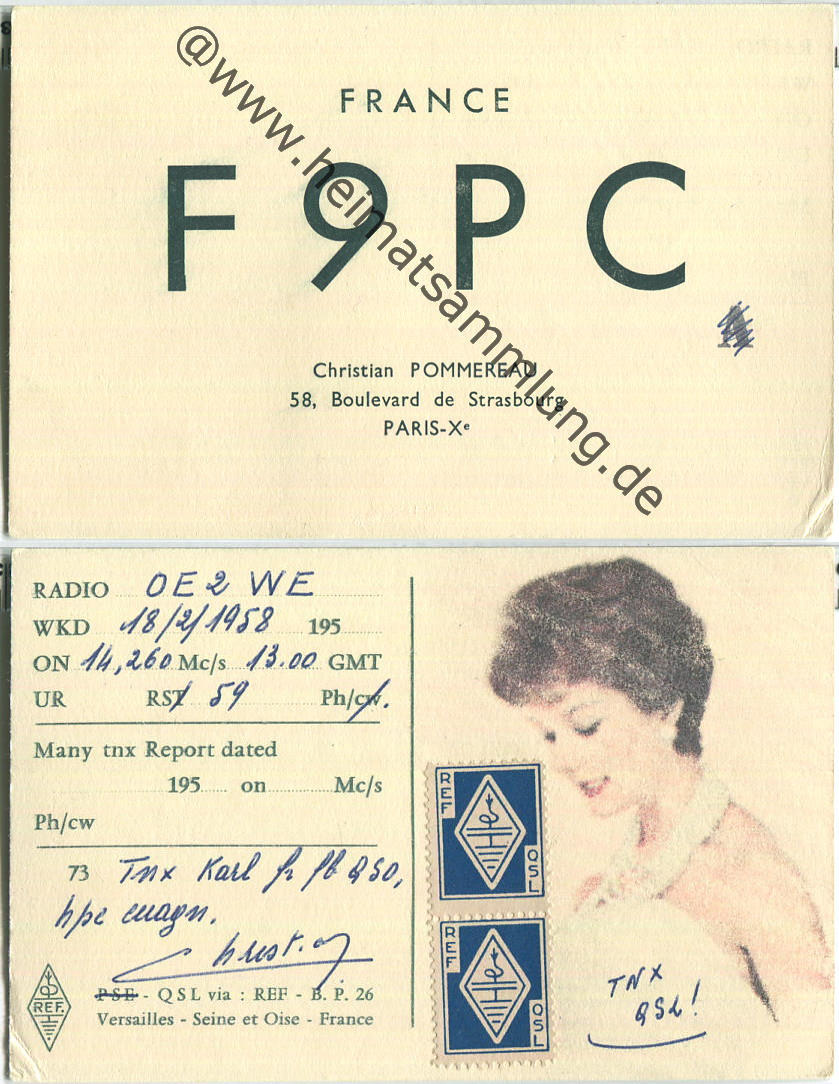 FRANCE
F9PC
Christian POMMEREAU
58, Boulevard de Strasbourg
PARIS-Xe
@www.heimatsammlung.de
RADIO OE2WE
WKD 18/2/1958 195
ON 14,260 Mc/s 13.00 GMT
UR RST 59 Ph/cw.
Many tnx Report dated
195 on Mc/s
Ph/cw
73 Tnx Karl fr fb QSO,
hpe cuagn.
PSE - QSL via : REF - B. P. 26
Versailles - Seine et Oise - France
R.E.F.
REF
QSL
REF
QSL
TNX
QSL!